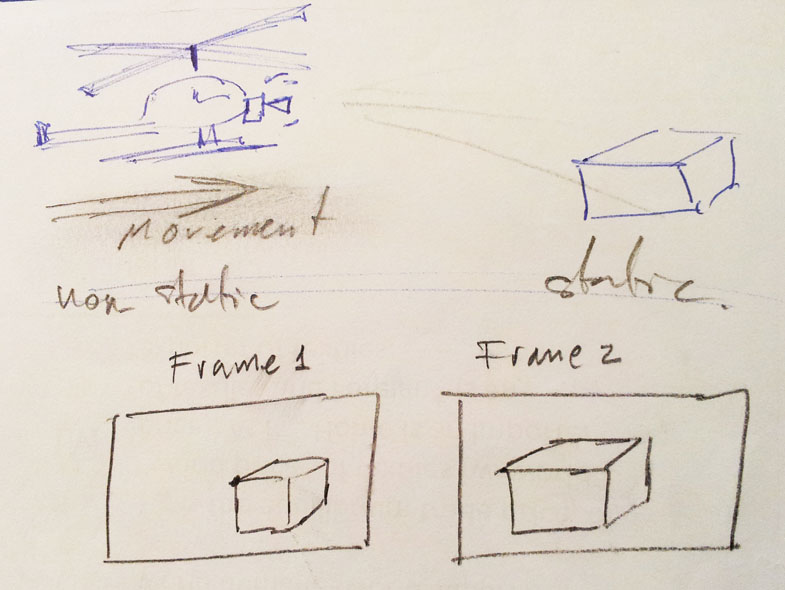 Movement
non static
static.
Frame 1
Frame 2